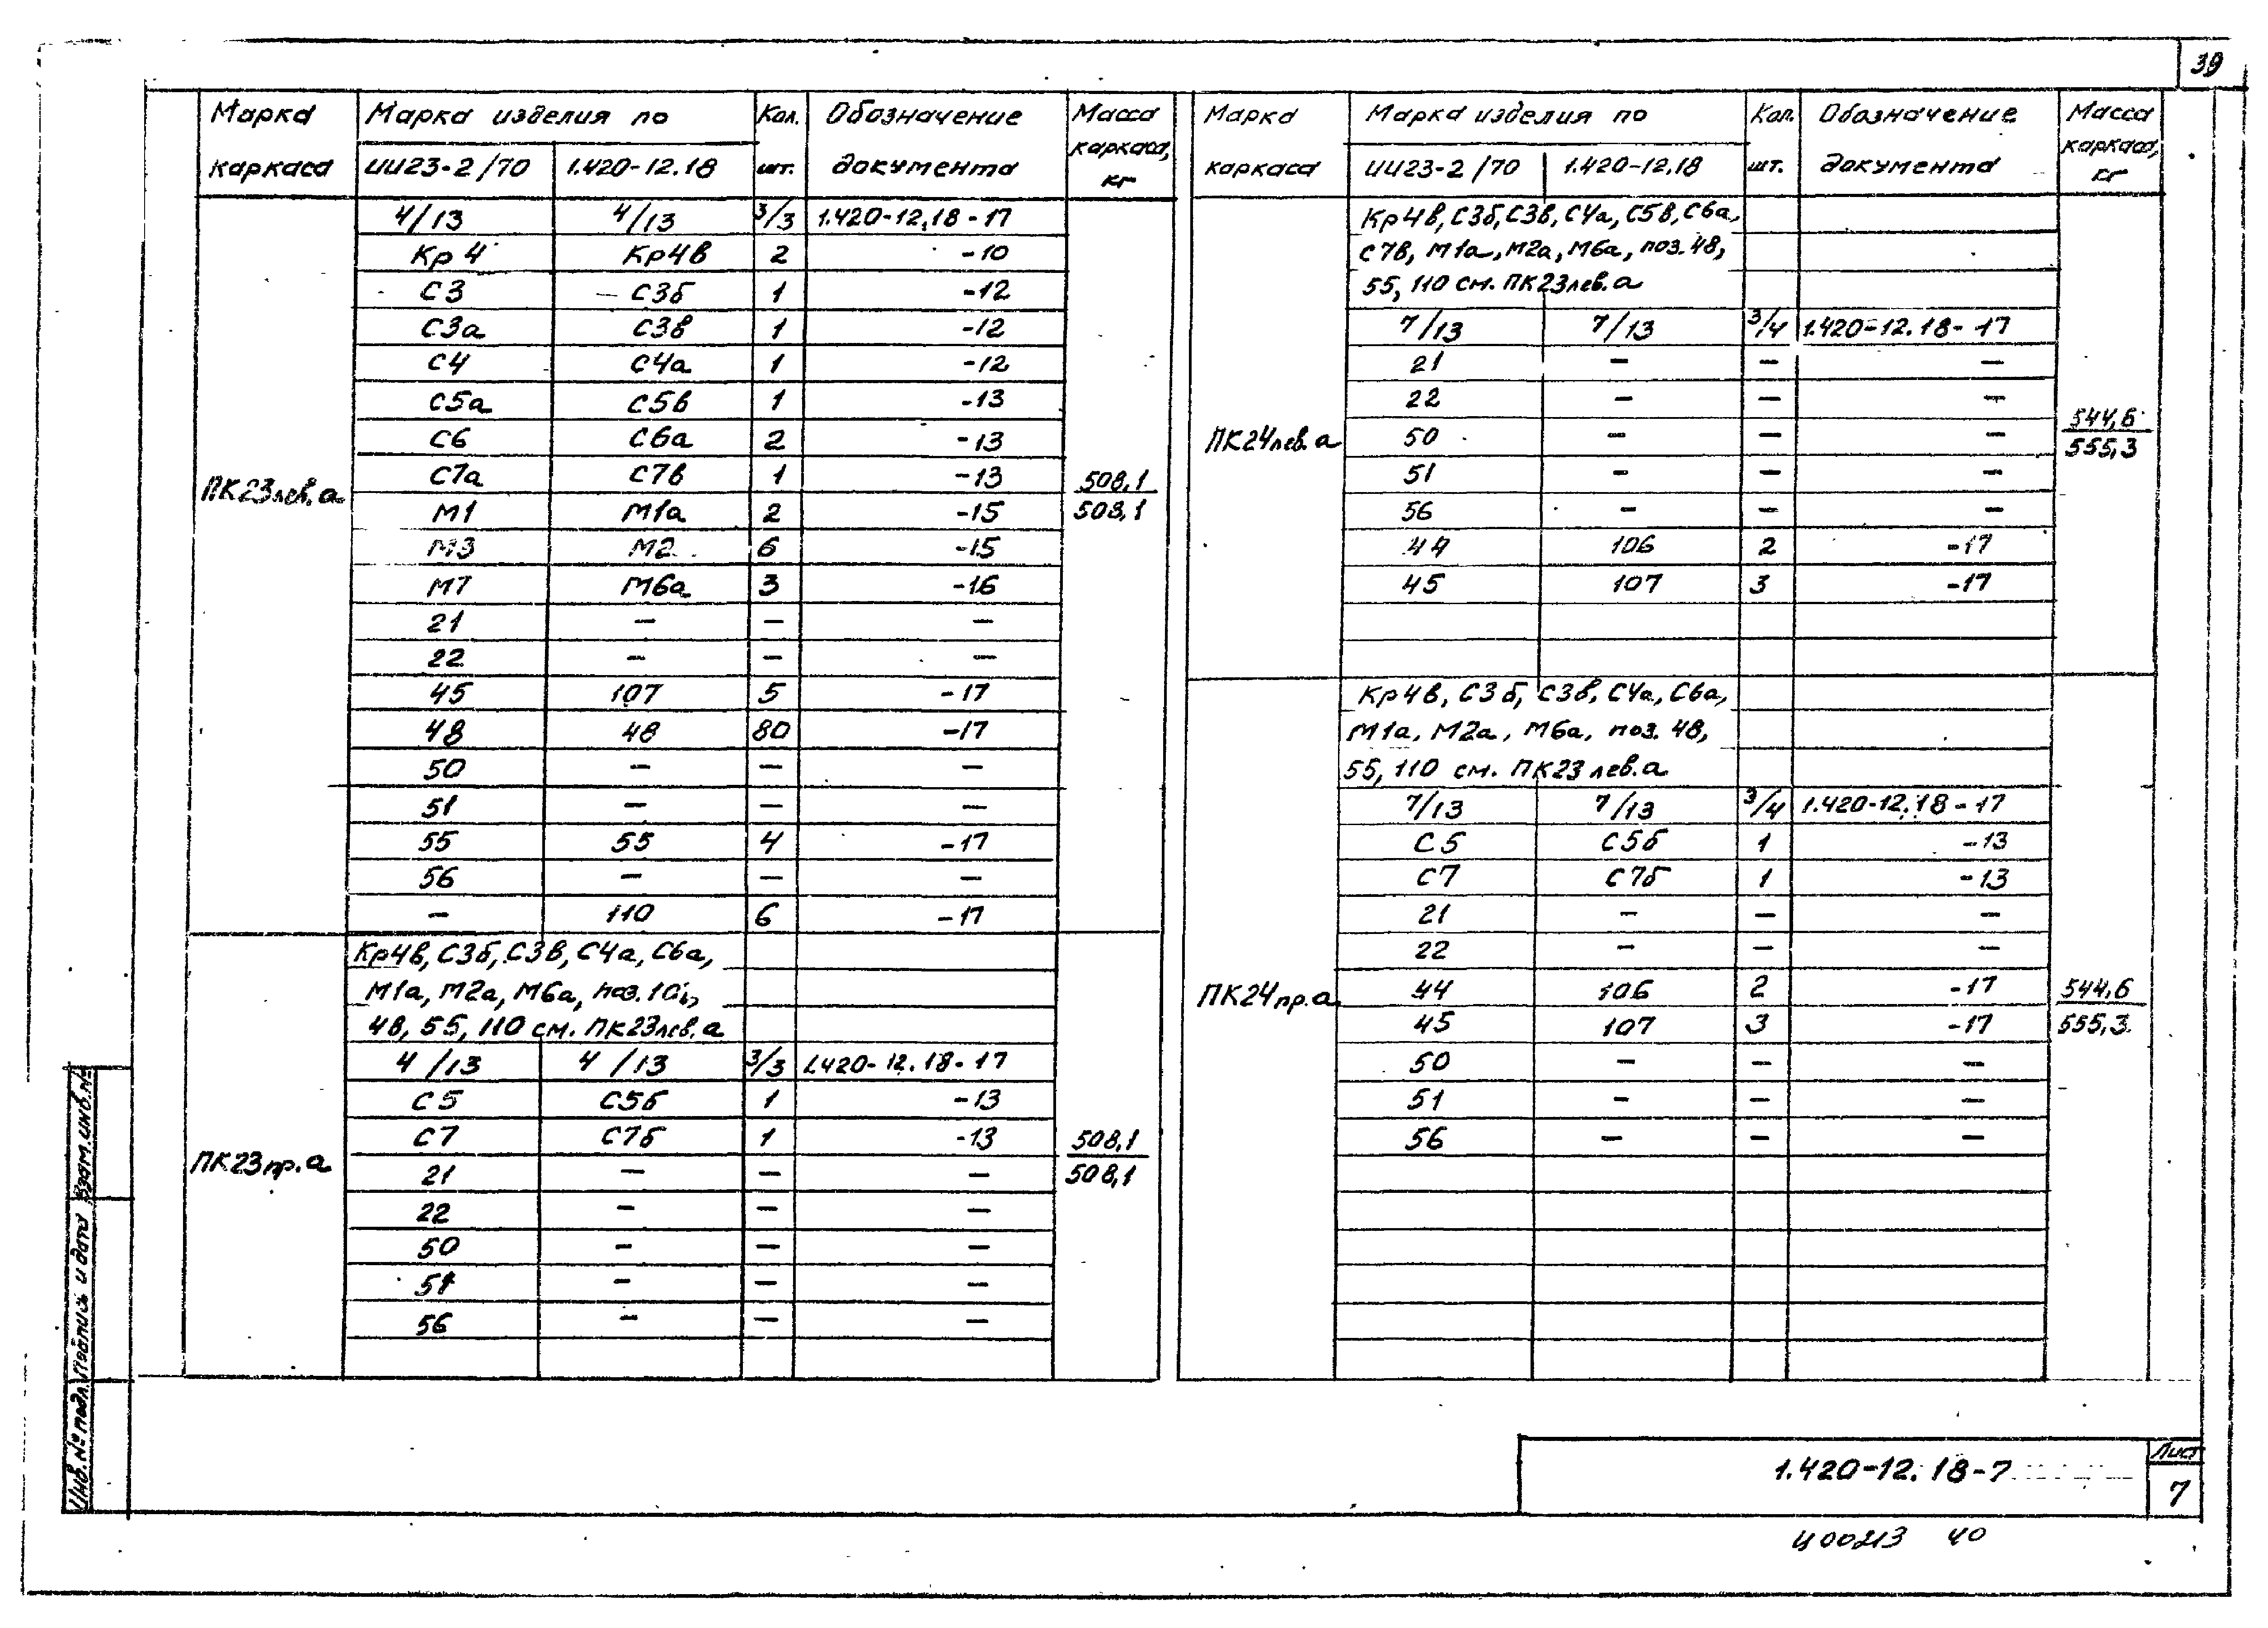 39
Марка каркаса | Марка изделия по | Кол. шт. | Обозначение документа | Масса каркаса, кг
ИИ23-2/70 | 1.420-12.18
ПК23лев.а | 508,1 / 508,1
4/13 | 4/13 | 3/3 | 1.420-12.18-17
Кр4 | Кр4в | 2 | -10
С3 | С3б | 1 | -12
С3а | С3в | 1 | -12
С4 | С4а | 1 | -12
С5а | С5в | 1 | -13
С6 | С6а | 2 | -13
С7а | С7в | 1 | -13
М1 | М1а | 2 | -15
М3 | М2 | 6 | -15
М7 | М6а | 3 | -16
21 | — | — | —
22 | — | — | —
45 | 107 | 5 | -17
48 | 48 | 80 | -17
50 | — | — | —
51 | — | — | —
55 | 55 | 4 | -17
56 | — | — | —
— | 110 | 6 | -17
ПК23пр.а | 508,1 / 508,1
Кр4в, С3б, С3в, С4а, С6а,
М1а, М2а, М6а, поз.
48, 55, 110 см. ПК23лев.а
4/13 | 4/13 | 3/3 | 1.420-12.18-17
С5 | С5б | 1 | -13
С7 | С7б | 1 | -13
21 | — | — | —
22 | — | — | —
50 | — | — | —
51 | — | — | —
56 | — | — | —
Марка каркаса | Марка изделия по | Кол. шт. | Обозначение документа | Масса каркаса, кг
ИИ23-2/70 | 1.420-12.18
ПК24лев.а | 544,6 / 555,3
Кр4в, С3б, С3в, С4а, С5в, С6а,
С7в, М1а, М2а, М6а, поз. 48,
55, 110 см. ПК23лев.а
7/13 | 7/13 | 3/4 | 1.420-12.18-17
21 | — | — | —
22 | — | — | —
50 | — | — | —
51 | — | — | —
56 | — | — | —
44 | 106 | 2 | -17
45 | 107 | 3 | -17
ПК24пр.а | 544,6 / 555,3
Кр4в, С3б, С3в, С4а, С6а,
М1а, М2а, М6а, поз. 48,
55, 110 см. ПК23лев.а
7/13 | 7/13 | 3/4 | 1.420-12.18-17
С5 | С5б | 1 | -13
С7 | С7б | 1 | -13
21 | — | — | —
22 | — | — | —
44 | 106 | 2 | -17
45 | 107 | 3 | -17
50 | — | — | —
51 | — | — | —
56 | — | — | —
Инв.№ подл. Подпись и дата Взам.инв.№
1.420-12.18-7
Лист
7
Ц00213 40